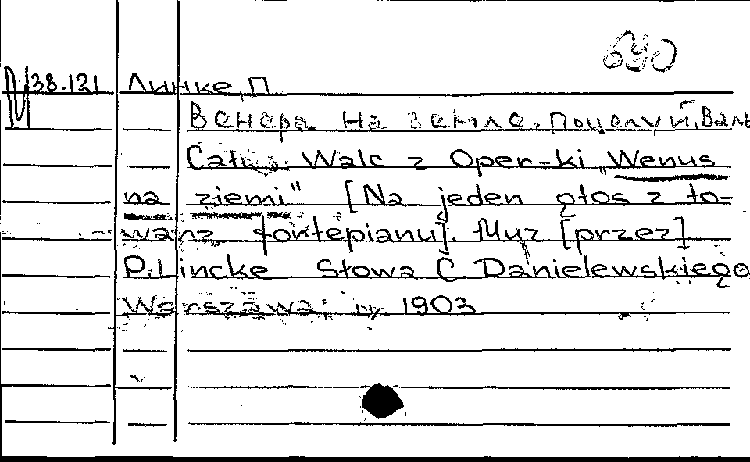 640
N 38.121 Линке, П.
Венера на земле. Поцелуй, Валь
Całus. Walc z Oper-ki „Wenus
na ziemi" [Na jeden głos z to-
warz. fortepianu]. Muz [przez]
P. Lincke Słowa C Danielewskiego
Warszawa: 1903